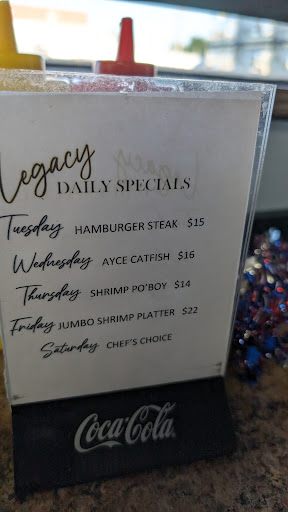 Legacy
DAILY SPECIALS
Tuesday HAMBURGER STEAK $15
Wednesday AYCE CATFISH $16
Thursday SHRIMP PO'BOY $14
Friday JUMBO SHRIMP PLATTER $22
Saturday CHEF'S CHOICE
Coca-Cola